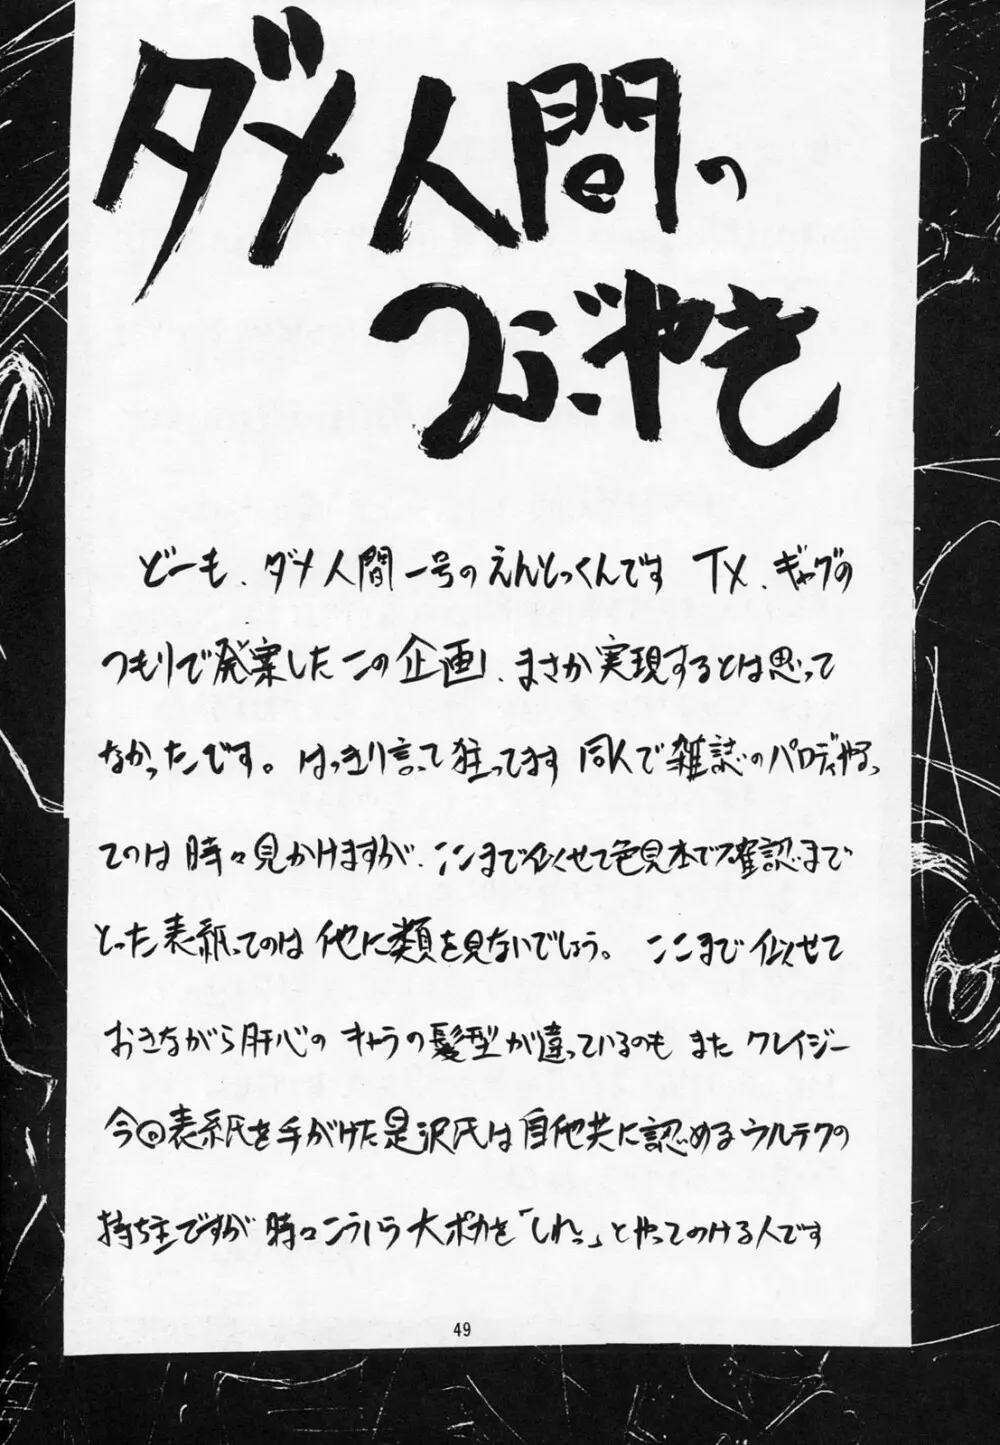 ダメ人間の
つぶやき
どーも、ダメ人間一号のえんどっくんです TX、ギャグの
つもりで発案したこの企画、まさか実現するとは思って
なかったです。はっきり言って狂ってます 同人で雑誌のパロディやるっ
てのは時々見かけますが、ここまで似せて色見本でみ確認まで
とった表紙ってのは他に類を見ないでしょう。ここまで似せて
おきながら肝心のキャラの髪型が違っているのもまたクレイジー
今回表紙を手がけた是沢氏は自他共に認めるウルテクの
持ち主ですが時々こういう大ポカを「しれっ」とやってのける人です
49